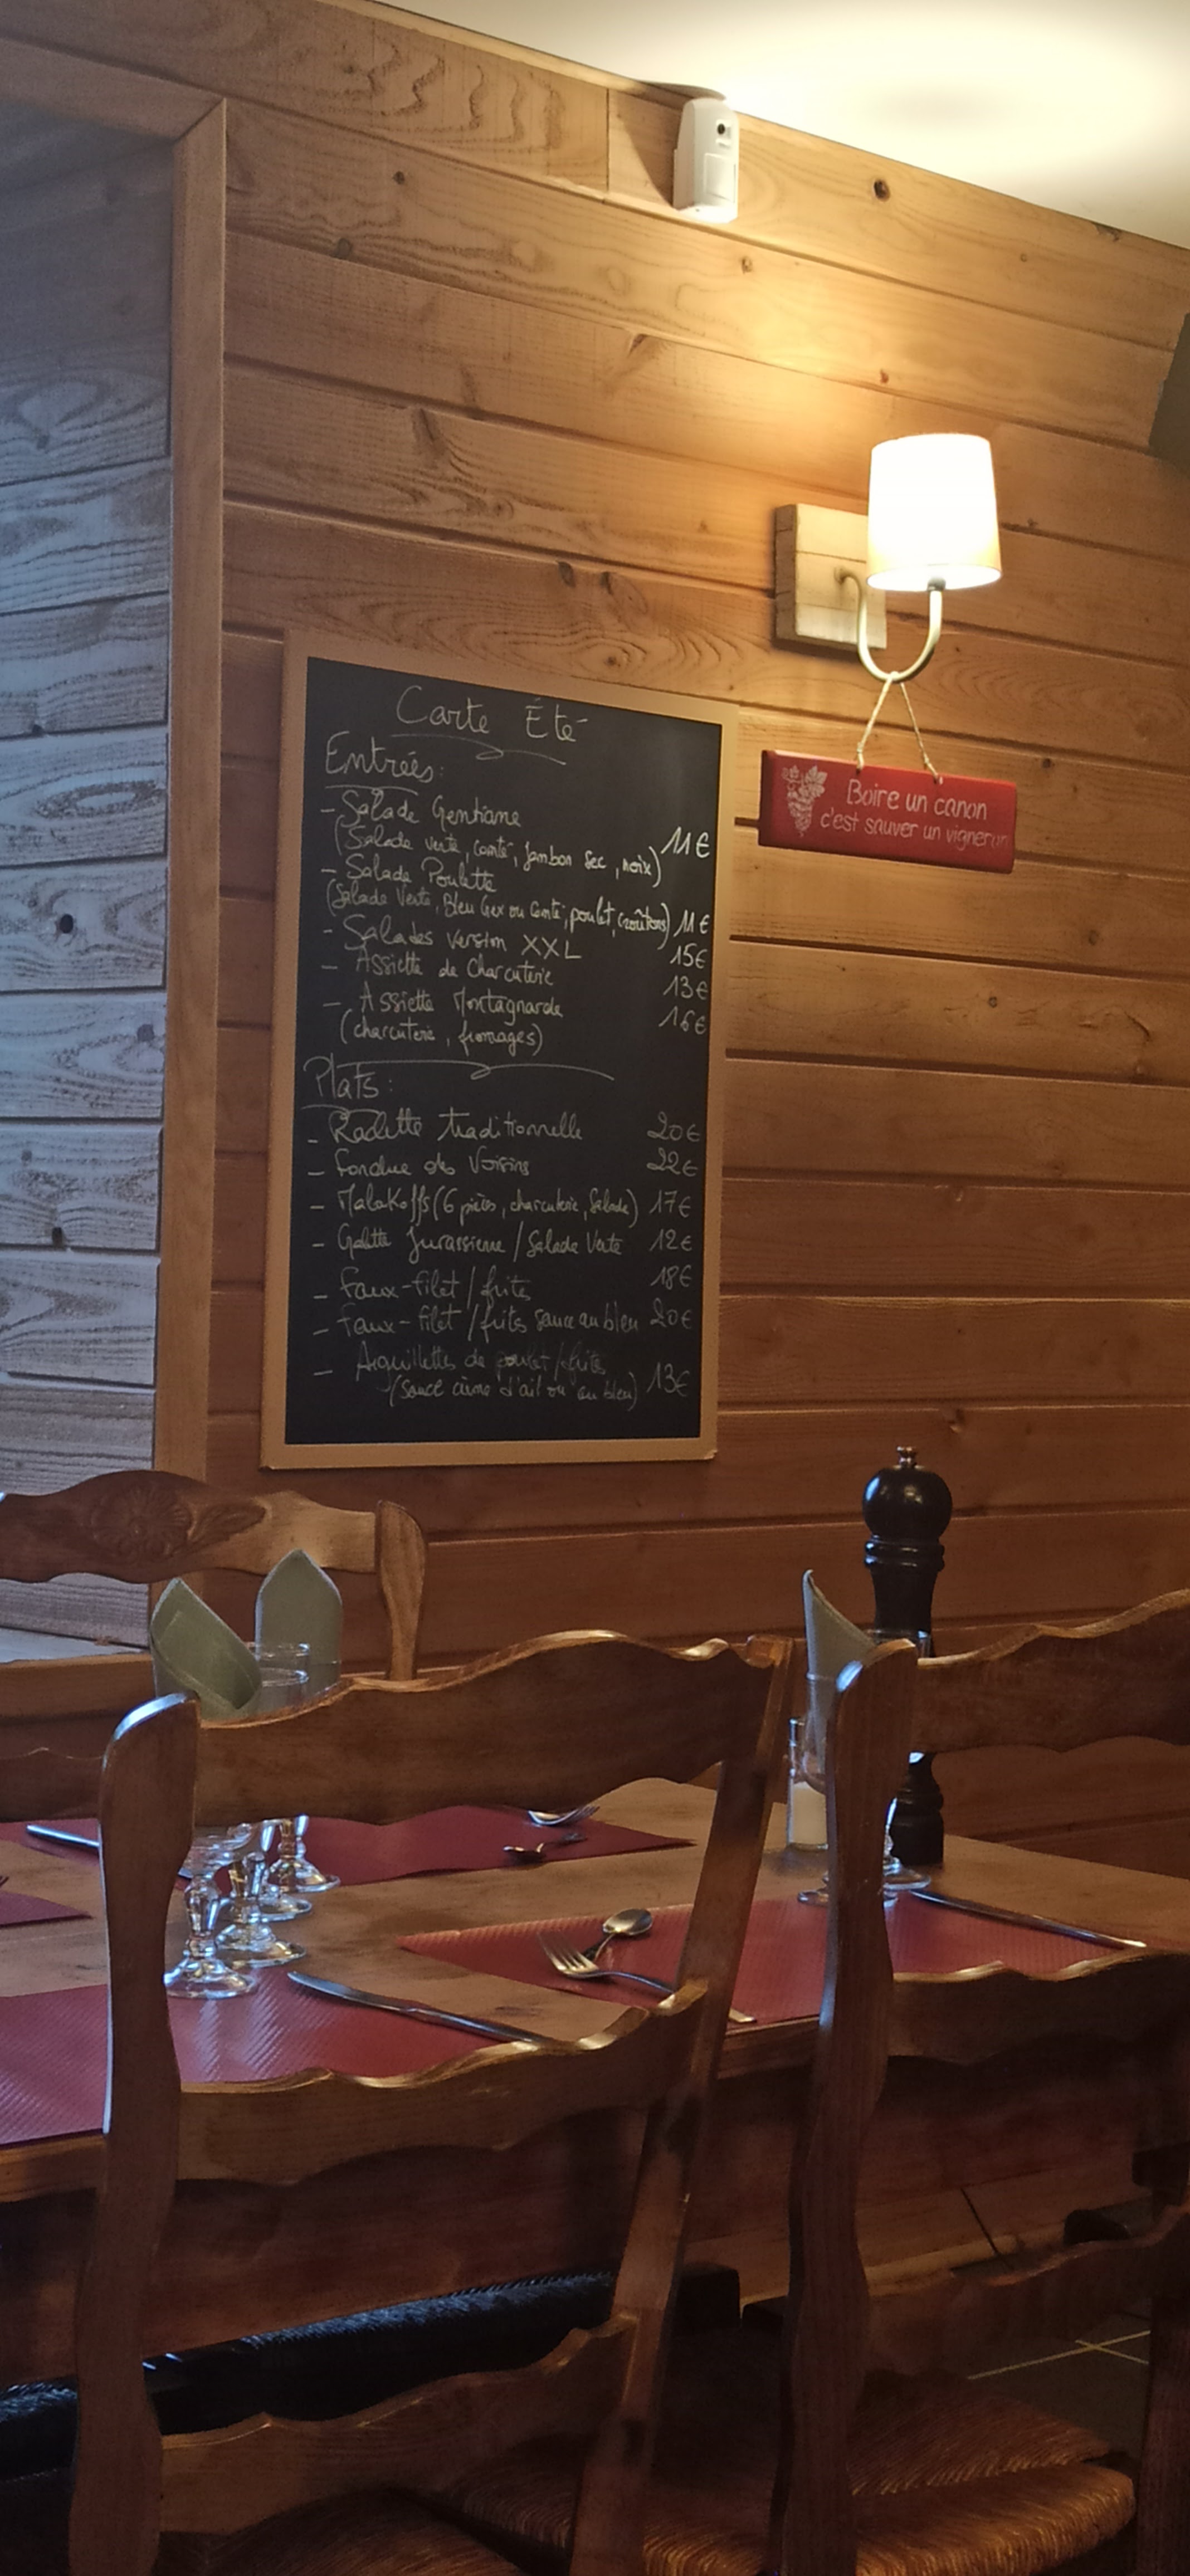 Carte Été
Entrées:
- Salade Gentiane
(Salade verte, comté, Jambon sec, noix) 11€
- Salade Poulette
(Salade Verte, Bleu Gex ou Comté, poulet, croûtons) 11€
- Salades Version XXL 15€
- Assiette de Charcuterie 13€
- Assiette Montagnarde 16€
(charcuterie, fromages)
Plats:
- Raclette traditionnelle 20€
- Fondue des Voisins 22€
- Malakoffs (6 pièces, charcuterie, Salade) 17€
- Galette Jurassienne / Salade Verte 12€
- Faux-filet / frites 18€
- Faux-filet / frites sauce au bleu 20€
- Aiguillettes de poulet / frites
(sauce crème d'ail ou au bleu) 13€
Boire un canon
c'est sauver un vigneron